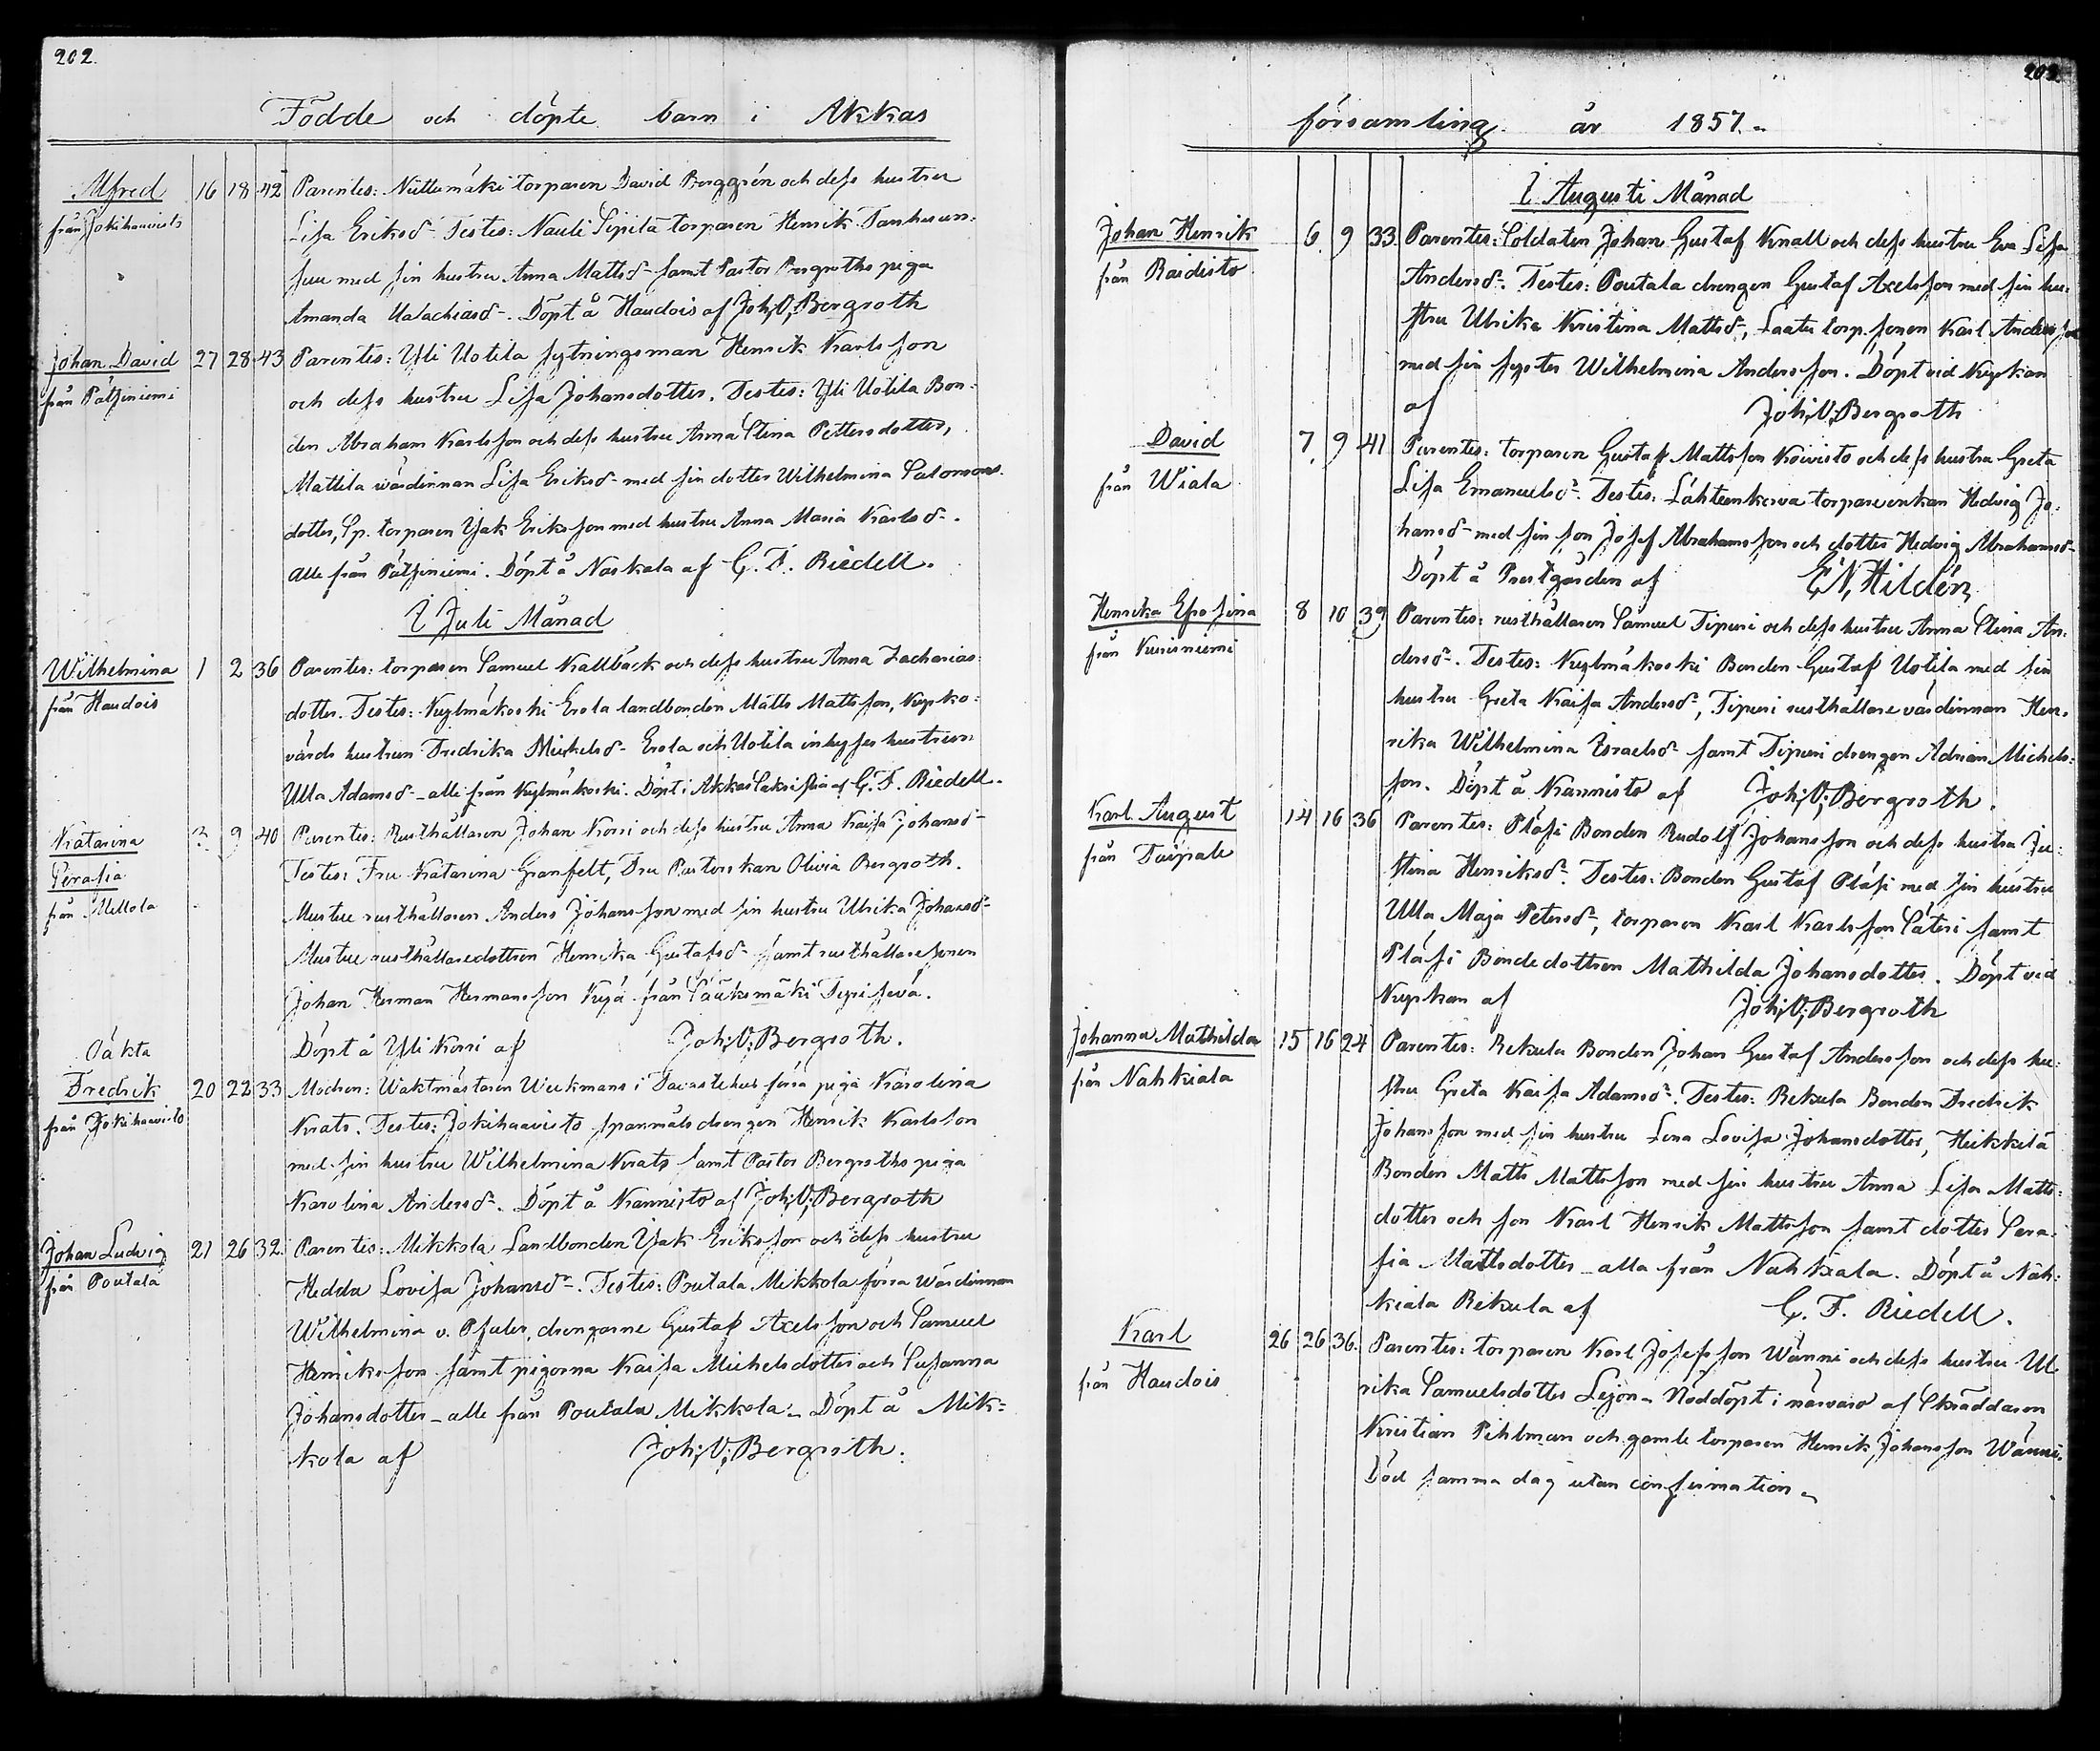 202.
Födde och döpte barn i Akkas
Alfred 16 18 42 Parentes: Niittumäki torparen David Berggrén och dess hustru
från Jokihaavisto Lisa Eriksdr Testes: Nauli Sipilä torparen Henrik Tanhuun-
suu med sin hustru Anna Mattsdr samt Pastor Bergroths piga
Amanda Malachiasdr. Döpt å Haudois af Joh. V. Bergroth
Johan David 27 28 43 Parentes: Yli Uotila sytningsman Henrik Karlsson
från Pätsiniemi och dess hustru Lisa Johansdotter. Testes: Yli Uotila Bon-
den Abraham Karlsson och dess hustru Anna Stina Pettersdotter,
Mattila värdinnan Lisa Eriksdr med sin dotter Wilhelmina Salomons
dotter, Sp. torparen Isak Eriksson med hustru Anna Maria Karlsdr.
alle från Pätsiniemi. Döpt å Naskala af C. F. Riedell.
I Juli Månad
Wilhelmina 1 2 36 Parentes: torparen Samuel Kallbäck och dess hustru Anna Zacharias-
från Haudois dotter. Testes: Kylmäkoski Erola landbonden Matts Mattsson, Kyrko-
värds hustrun Fredrika Mickelsdr Erola och Uotila inhyses hustrun
Ulla Adamsdr - alle från Kylmäkoski. Döpt i Akkas Sakristia af C. F. Riedell.
Katarina 3 9 40 Parentes: Rusthållaren Johan Korri och dess hustru Anna Kaisa Johansdr
Serafia Testes: Fru Katarina Granfelt, Fru Pastorskan Olivia Bergroth.
från Mellola Mustue rusthållaren Anders Johansson med sin hustru Ulrika Johansdr
Mustue rusthållaredottren Henrika Gustafsdr samt rusthållaresonen
Johan Herman Hermansson Kyrä från Sääksmäki
Döpt å Yli Korri af Joh. V. Bergroth.
Oäkta
Fredrik 20 22 33 Modren: Waktmästaren Wickmans i Tavastehus förra piga Karolina
från Jokihaavisto Krats. Testes: Jokihaavisto spanmålsdrengen Henrik Karlsson
med sin hustru Wilhelmina Krats samt Pastor Bergroths piga
Karolina Andersdr. Döpt å Kannisto af Joh. V. Bergroth
Johan Ludvig 21 26 32 Parentes: Mikkola Landbonden Isak Eriksson och dess hustru
från Poutala Hedda Lovisa Johansdr. Testes: Poutala Mikkola förra wärdinnan
Wilhelmina v. Pfaler, drengarne Gustaf Axelsson och Samuel
Henriksson samt pigorna Kaisa Michelsdotter och Susanna
Johansdotter - alle från Poutala Mikkola - Döpt å Mik-
kola af Joh. V. Bergroth.
203.
församling år 1857.
I Augusti Månad
Johan Henrik 6 9 33 Parentes: Soldaten Johan Gustaf Knall och dess hustru Eva Lisa
från Raidisto Andersdr. Testes: Poutala drengen Gustaf Axelsson med sin hu-
stru Ulrika Kristina Mattsdr, Laatu torp. sonen Karl Andersson
med sin syster Wilhelmina Andersson. Döpt vid Kyrkan
af Joh. V. Bergroth
David 7 9 41 Parentes: torparen Gustaf Mattsson Koivisto och dess hustru Greta
från Wiala Lisa Emanuelsdr. Testes: Lähteenkorva torpareenkan Hedvig Jo-
hansdr med sin son Josef Abrahamsson och dotter Hedvig Abrahamsdr
Döpt å Prestgården af E N Hildén
Henrika Efrosina 8 10 39 Parentes: rusthållaren Samuel Tipuri och dess hustru Anna Stina An-
från Kurisniemi dersdr. Testes: Kylmäkoski Bonden Gustaf Uotila med sin
hustru Greta Kaisa Andersdr, Tipuri rusthållare värdinnan Hen-
rika Wilhelmina Israelsdr samt Tipuri drengen Adrian Michels-
son. Döpt å Kannisto af Joh. V. Bergroth.
Karl August 14 16 36 Parentes: Pläsi Bonden Rudolf Johansson och dess hustru Ju-
från Taipale stina Henriksdr. Testes: Bonden Gustaf Pläsi med sin hustru
Ulla Maja Petersdr, torparen Karl Karlsson Säteri samt
Pläsi Bondedottren Mathilda Johansdotter. Döpt vid
Kyrkan af Joh. V. Bergroth
Johanna Mathilda 15 16 24 Parentes: Rekula Bonden Johan Gustaf Andersson och dess hu-
från Nahkiala stru Greta Kaisa Adamsdr. Testes: Rekula Bonden Fredrik
Johansson med sin hustru Lena Lovisa Johansdotter, Heikkilä
Bonden Matts Mattsson med sin hustru Anna Lisa Matts-
dotter och son Karl Henrik Mattsson samt dotter Sera-
fia Mattsdotter - alla från Nahkiala. Döpt å Nah-
kiala Rekula af C. F. Riedell.
Karl 26 26 36. Parentes: torparen Karl Josefsson Wänni och dess hustru Ul-
från Haudois rika Samuelsdotter Lejon - Nöddöpt i närvaro af Skräddaren
Kristian Pihlman och gamle torparen Henrik Johansson Wänni.
Död samma dag utan confirmation -